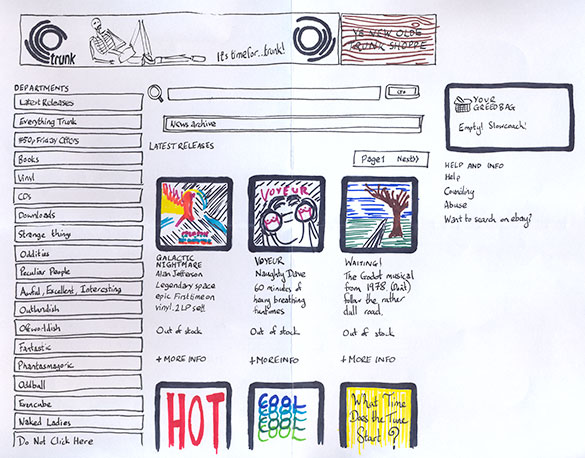 trunk
It's time for...trunk!
YE NEW OLDE
TRUNK SHOPPE
DEPARTMENTS
Latest Releases
Everything Trunk
Books
Vinyl
CDs
Downloads
Strange thing
Oddities
Peculiar People
Awful, Excellent, Interesting
Outlandish
Otherworldish
Fantastic
Phantasmagoric
Oddball
Naked Ladies
Do Not Click Here
GO!
News Archive
LATEST RELEASES
Page 1 Next>>
VOYEUR
GALACTIC
NIGHTMARE
Alan Jefferson
Legendary space
epic. First time on
vinyl. 2 LP set!
Out of stock
+ MORE INFO
VOYEUR
Naughty Dave
60 minutes of
heavy breathing
funtimes
Out of stock
+ MORE INFO
WAITING!
The Godot musical
from 1978. (Wait)
follow the rather
dull road.
Out of stock
+ MORE INFO
HOT
COOL
COOL
COOL
What Time
Does the Tune
Start?
YOUR
GREEDBAG
Empty! Slowcoach!
HELP AND INFO
Help
Counciling
Abuse
Want to search on ebay?